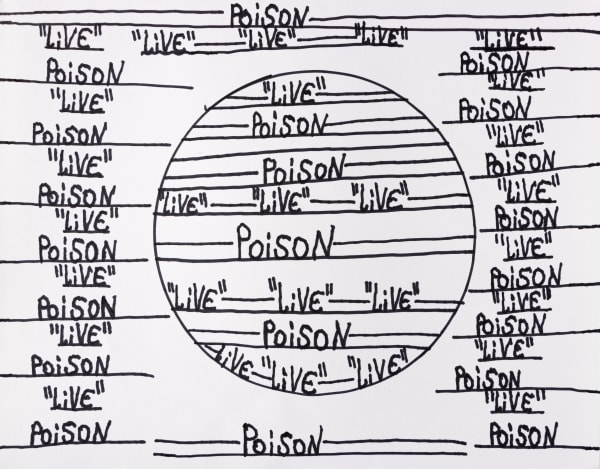 POiSON
"LiVE"
POiSON
"LiVE"
POiSON
"LiVE"
POiSON
"LiVE"
POiSON
"LiVE"
POiSON
"LiVE"
POiSON
"LiVE"
POiSON
"LiVE" "LiVE" "LiVE"
"LiVE"
POiSON
POiSON
"LiVE" "LiVE" "LiVE"
POiSON
"LiVE" "LiVE" "LiVE"
POiSON
"LiVE "LiVE" "LiVE"
POiSON
"LiVE"
POiSON
"LiVE"
POiSON
"LiVE"
POiSON
"LiVE"
POiSON
"LiVE"
POiSON
"LiVE"
POiSON
"LiVE"
POiSON
"LiVE"
POiSON